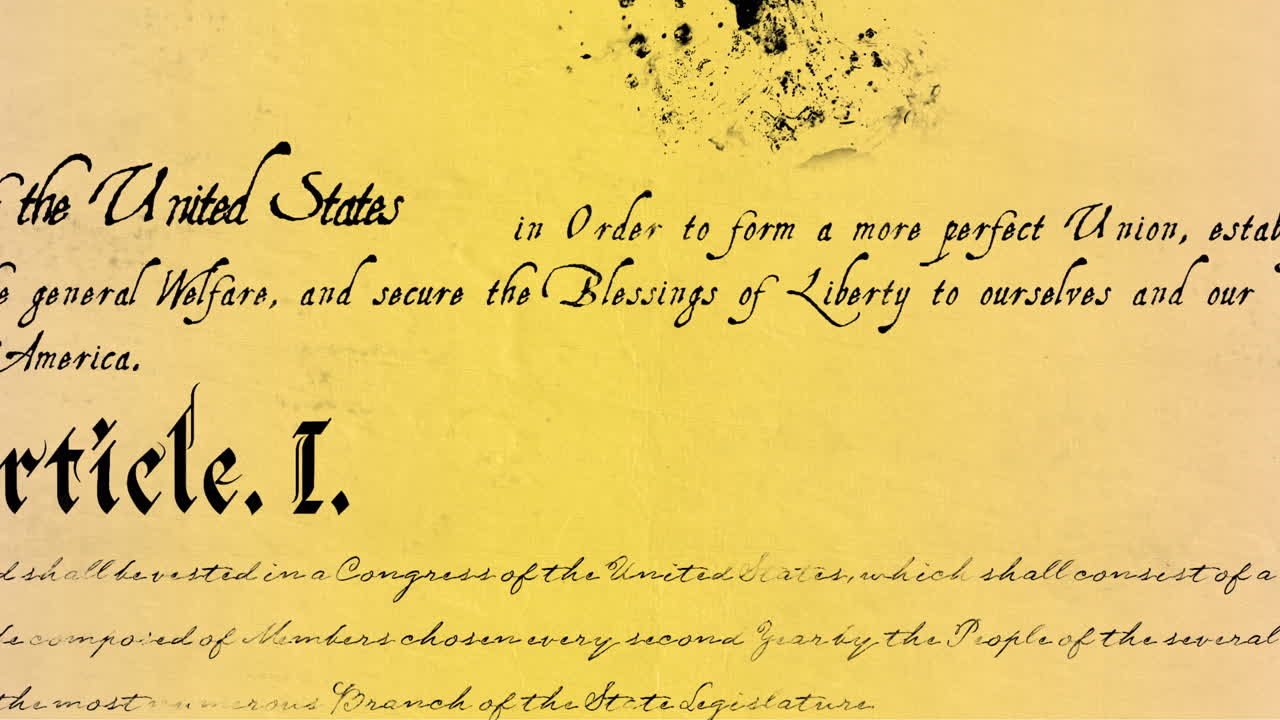 the United States in Order to form a more perfect Union, estab
general Welfare, and secure the Blessings of Liberty to ourselves and our
America.
rticle. I.
d shall be vested in a Congress of the United States, which shall consist of a
be composed of Members chosen every second Year by the People of the several
the most numerous Branch of the State Legislature